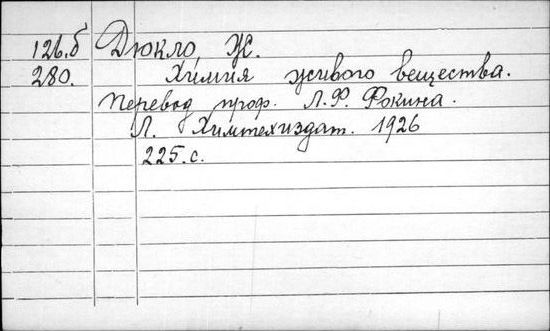 126.б Дюкло, Ж.
280. Химия живого вещества.
Перевод проф. Л.Ф. Фокина.
Л. Химтехиздат. 1926
225.с.